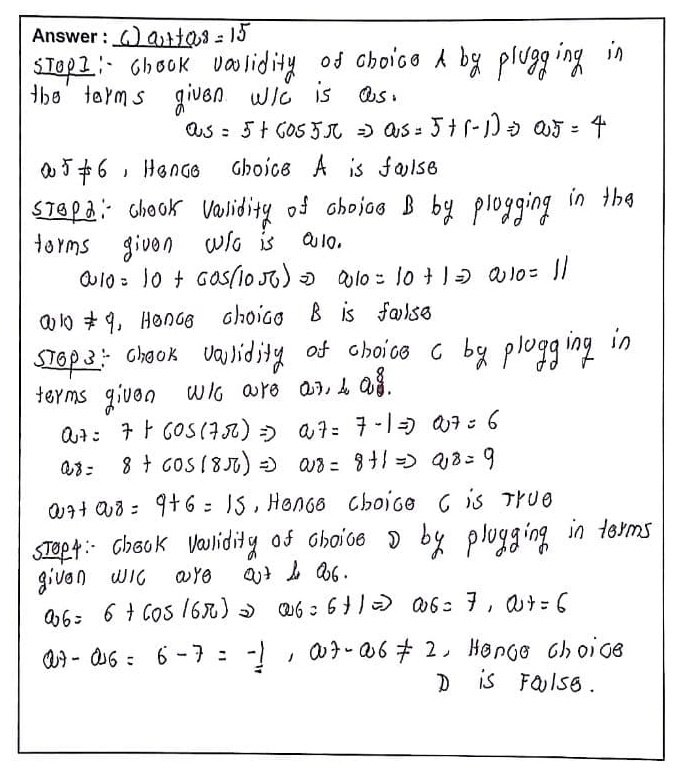 Answer : C) a7+a8 = 15
STEP1:- Check validity of choice A by plugging in
the terms given w/c is a5.
a5 = 5 + cos5π ⇒ a5 = 5+(-1) ⇒ a5 = 4
a5 ≠ 6 , Hence choice A is false
STEP2:- check validity of choice B by plugging in the
terms given w/c is a10.
a10 = 10 + cos(10π) ⇒ a10 = 10 + 1 ⇒ a10 = 11
a10 ≠ 9, Hence choice B is false
STEP3:- check validity of choice C by plugging in
terms given w/c are a7, & a8.
a7 = 7 + cos(7π) ⇒ a7 = 7 -1 ⇒ a7 = 6
a8 = 8 + cos(8π) ⇒ a8 = 8+1 ⇒ a8 = 9
a7+ a8 = 9+6 = 15, Hence choice C is True
STEP4:- Check validity of choice D by plugging in terms
given w/c are a7 & a6.
a6 = 6 + cos(6π) ⇒ a6 = 6+1 ⇒ a6 = 7 , a7 = 6
a7 - a6 = 6 - 7 = -1 , a7 - a6 ≠ 2, Hence choice
D is False.